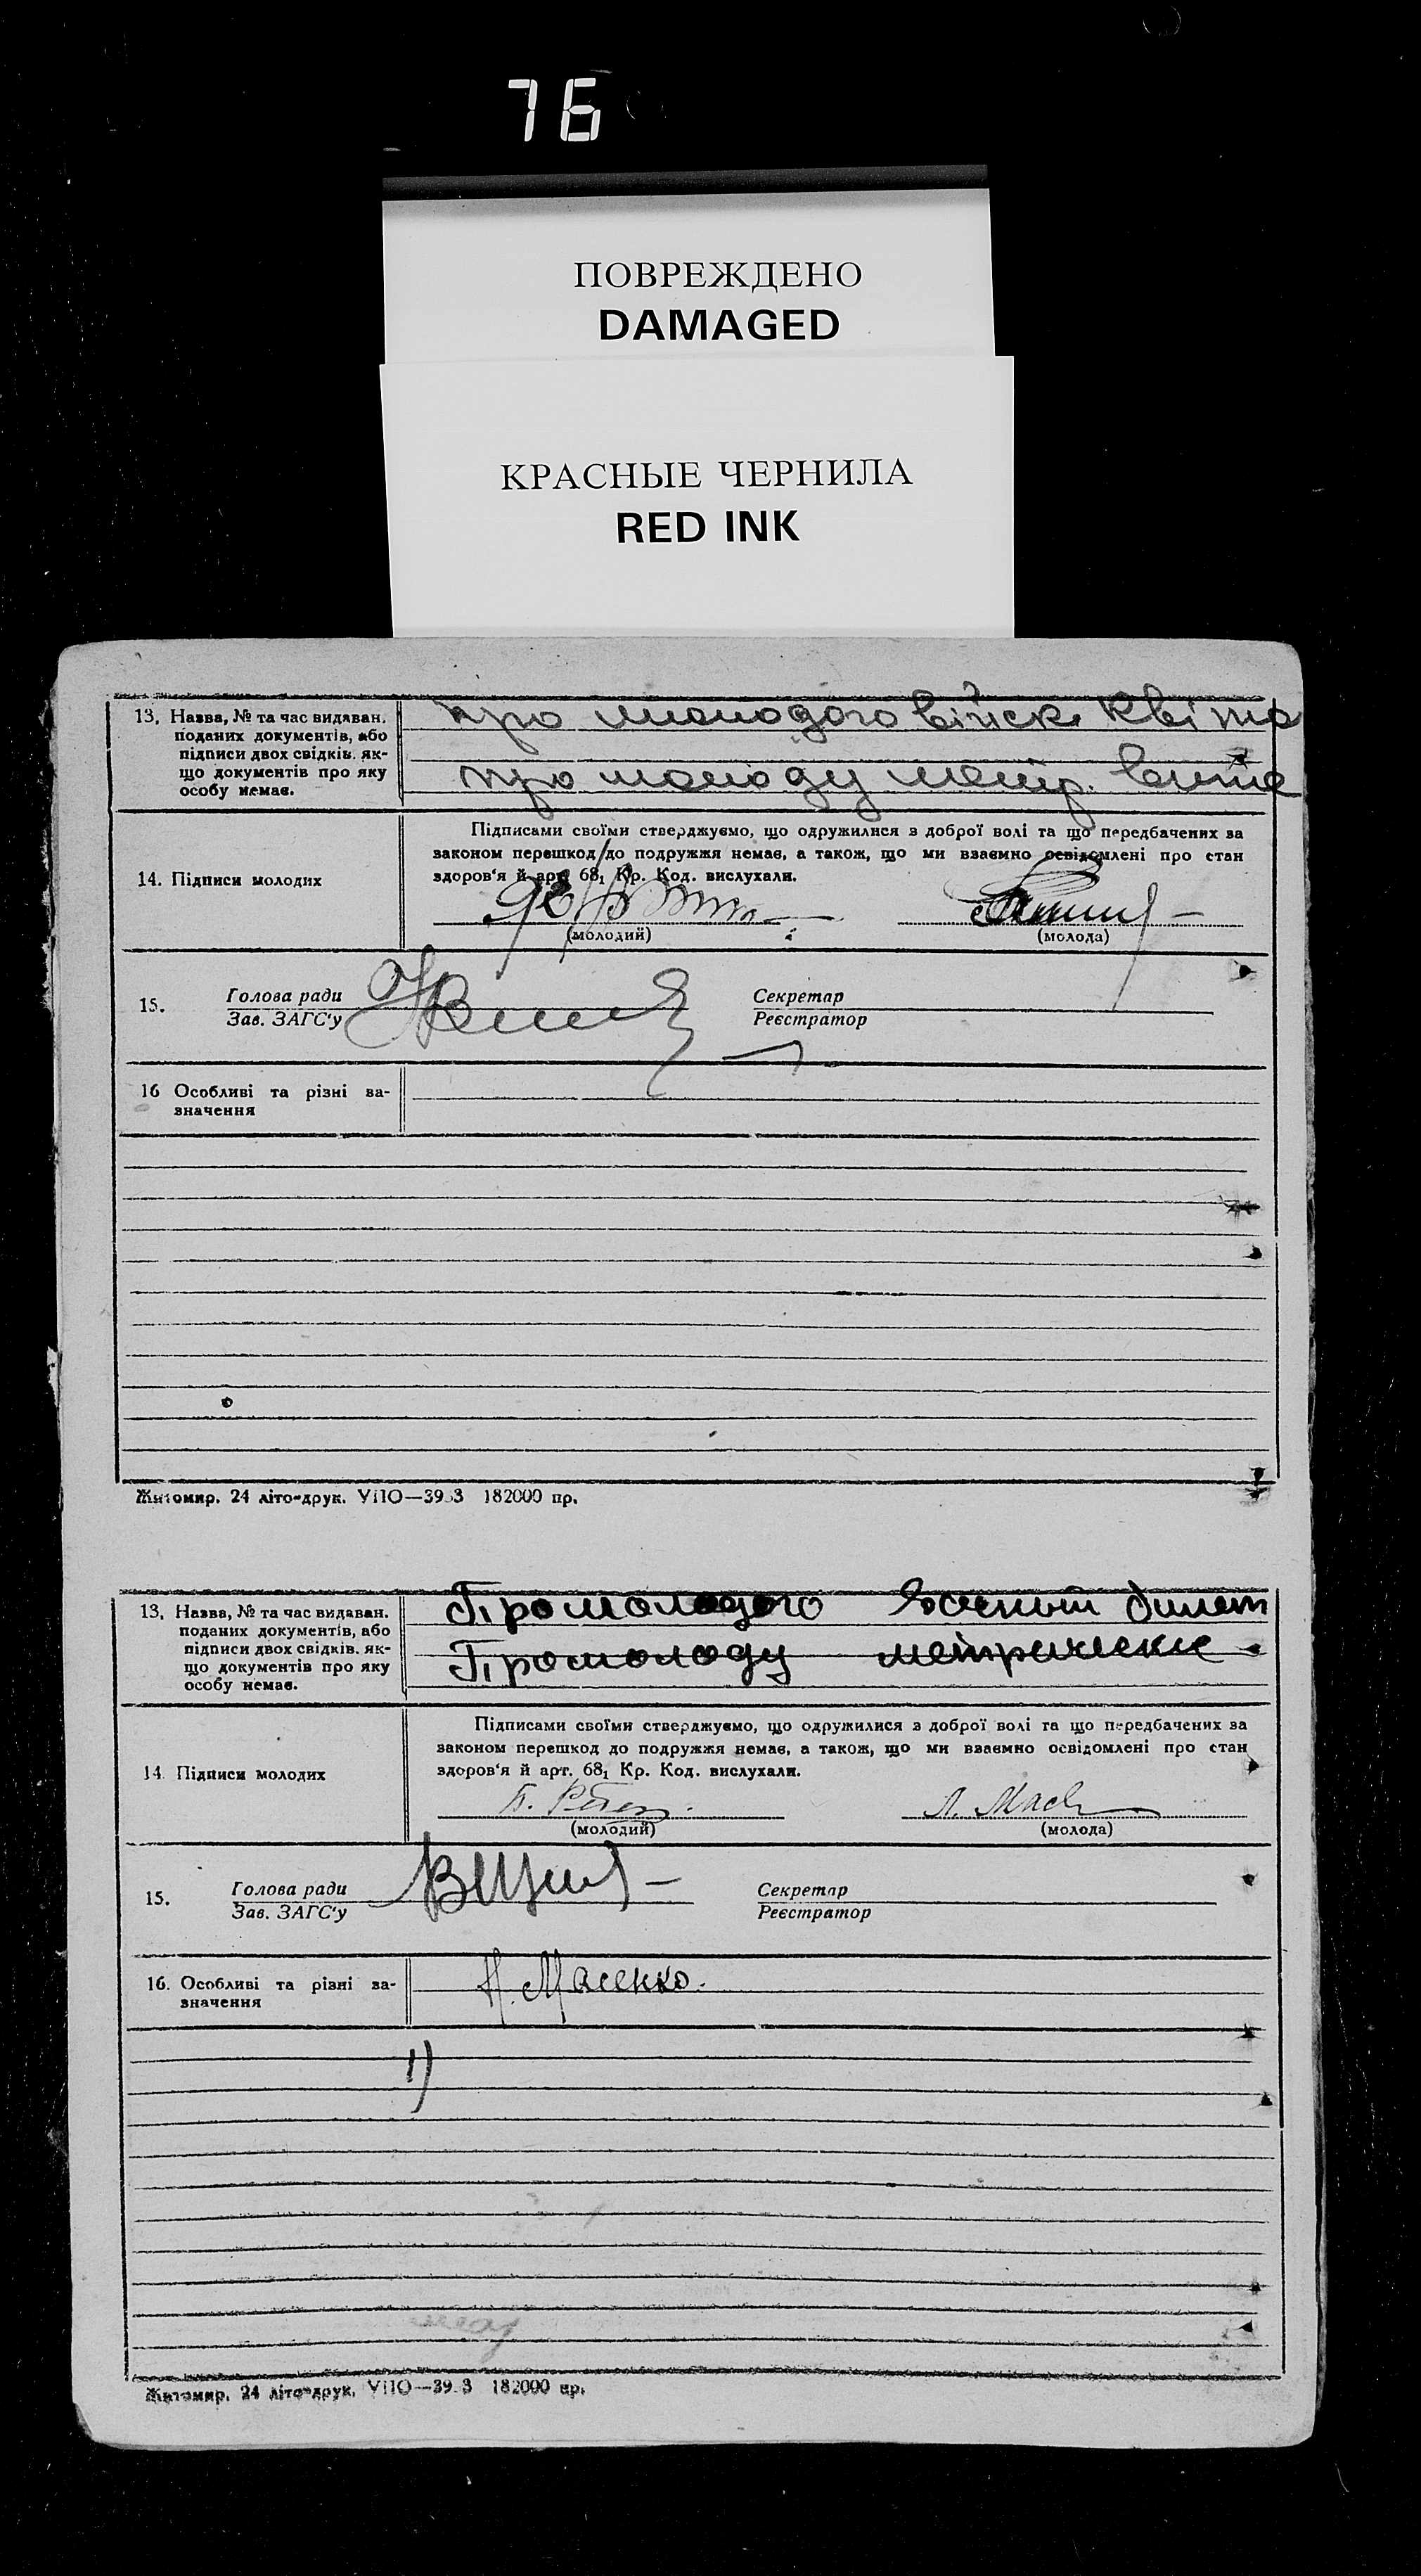 76
ПОВРЕЖДЕНО
DAMAGED
КРАСНЫЕ ЧЕРНИЛА
RED INK
13. Назва, № та час видаван. поданих документів, або підписи двох свідків, як- що документів про яку особу немає.
про молодого війск. квіта
про молоду метр. витяг
14. Підписи молодих
Підписами своїми стверджуємо, що одружилися з доброї волі та що передбачених за
законом перешкод до подружжя немає, а також, що ми взаємно освідомлені про стан
здоров'я й арт. 68₁ Кр. Код. вислухали.
(молодий) (молода)
15. Голова ради
Зав. ЗАГС'у
Секретар
Реєстратор
16 Особливі та різні за-
значення
Житомир. 24 літо-друк. УПО—39 3 182000 пр.
13. Назва, № та час видаван.
поданих документів, або
підписи двох свідків, як-
що документів про яку
особу немає.
Про молодого военный билет
Про молоду метрические
14. Підписи молодих
Підписами своїми стверджуємо, що одружилися з доброї волі та що передбачених за
законом перешкод до подружжя немає, а також, що ми взаємно освідомлені про стан
здоров'я й арт. 68₁ Кр. Код. вислухали.
(молодий) (молода)
15. Голова ради
Зав. ЗАГС'у
Секретар
Реєстратор
16. Особливі та різні за-
значення
Н. Масенко.
1)
Житомир. 24 літо-друк. УПО—39 3 182000 пр.